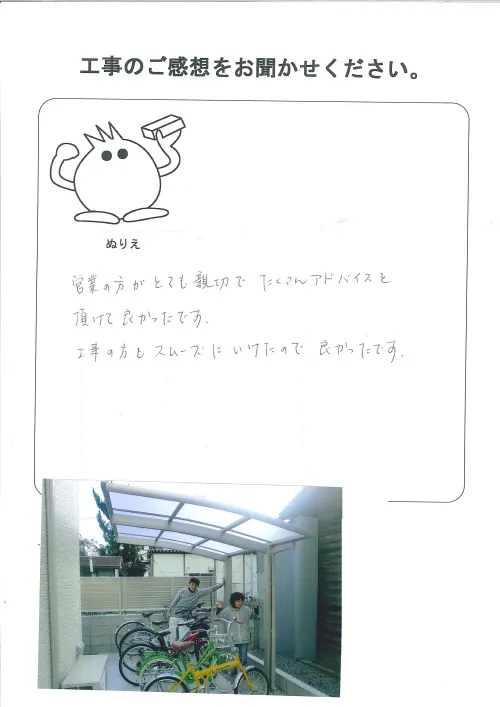 工事のご感想をお聞かせください。
ぬりえ
営業の方がとても親切でたくさんアドバイスを
頂けて良かったです。
工事の方もスムーズにいけたので良かったです。